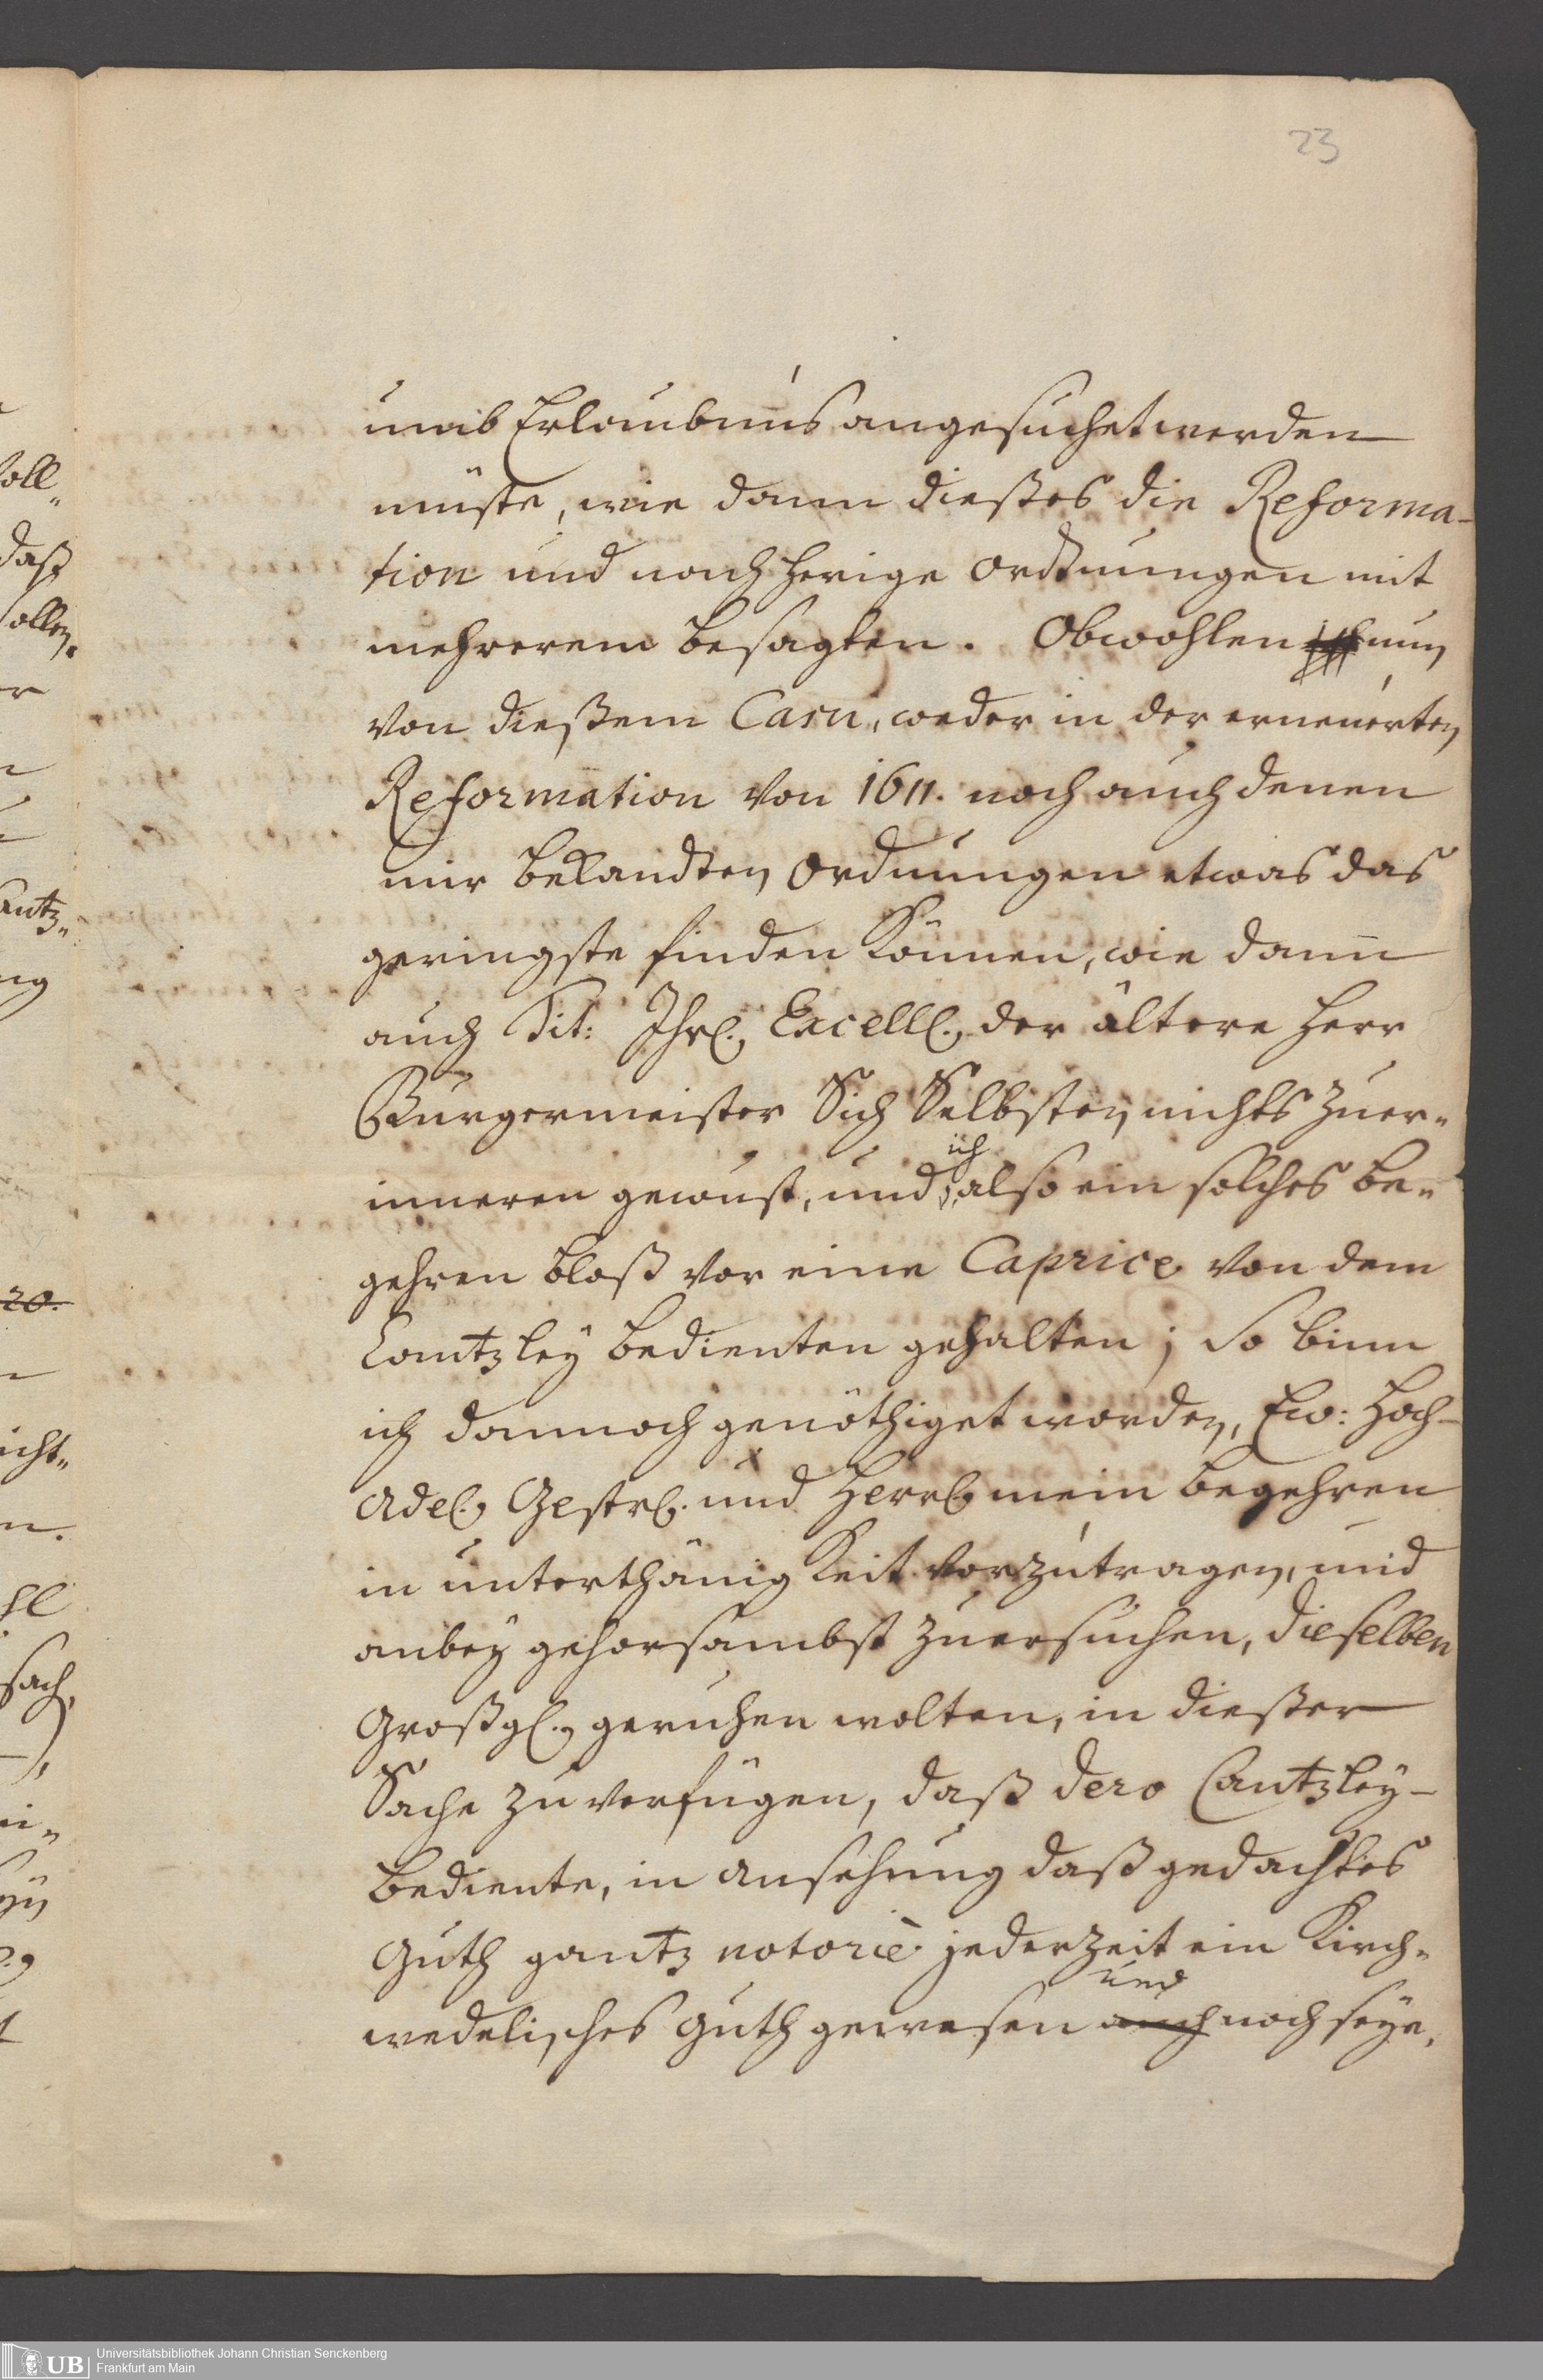 23
umb Erlaubnus angesuchet werden
müste, wie dann dießes die Reforma-
tion und nachherige Ordnungen mit
mehrerem besagten. Obwohlen nun
von dießem Casu, weder in der erneuerten
Reformation von 1611. noch auch denen
mir bekandten Ordnungen etwas das
geringste finden können, wie dann
auch Tit: Ihrl. Excell. der ältere Herr
Burgermeister Sich Selbsten nichts zuer-
inneren gewust, und ich also ein solches be-
gehren bloß vor eine Caprice von dem
Cantzley bedienten gehalten; So binn
ich dannoch genöthiget worden, Ew: Hoch-
Adel. Gestrl. und Herrl. mein begehren
in unterthänigkeit vorzutragen, und
anbey gehorsambst zuersuchen, dieselben
Großgl. geruhen wolten, in dießer
Sache zu verfügen, daß dero Cantzley-
bediente, in ansehung daß gedachtes
Guth gantz notoriè jederzeit ein Kirch-
wedelisches Guth gewesen und auch noch seye,
oll
daß
ollen.
antz-
20.
icht-
sach,
UB Universitätsbibliothek Johann Christian Senckenberg
Frankfurt am Main